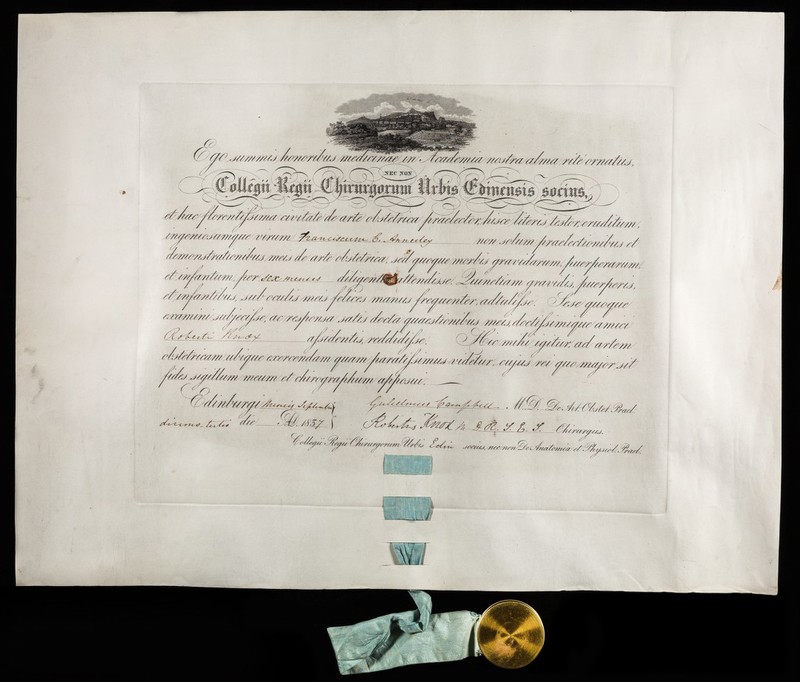 Ego summis honoribus medicinae in Academia nostra alma rite ornatus,
NEC NON
Collegii Regii Chirurgorum Urbis Edinensis socius,
et hac florentissima civitate de arte obstetrica praelector, hisce literis testor, eruditum,
ingeniosumque virum Franciscum C. Annesley non solum praelectionibus et
demonstrationibus meis de arte obstetrica, sed quoque morbis gravidarum, puerperarum,
et infantum, per sex menses diligenter attendisse. Quinetiam gravidis, puerperis,
et infantibus, sub oculis meis felices manus frequenter, adtulisse. Sese quoque
examini subjecisse, ac responsa satis docta quaestionibus meis, doctissimique amici
Roberti Knox assidentis, reddidisse. Hic mihi igitur, ad artem
obstetricam ubique exercendam quam paratissimus videtur, cujus rei quo major sit
fides sigillum meum et chirographum apposui.
Edinburgi Mensis Septembris Gulielmus Campbell M.D. De Art Obstet. Prael.
decimo tertio die A.D. 1837 Robertus Knox M. D. R. S. E. S. Chirurgus,
Collegii Regii Chirurgorum Urbis Edin socius, nec non De Anatomia et Physiol. Prael.